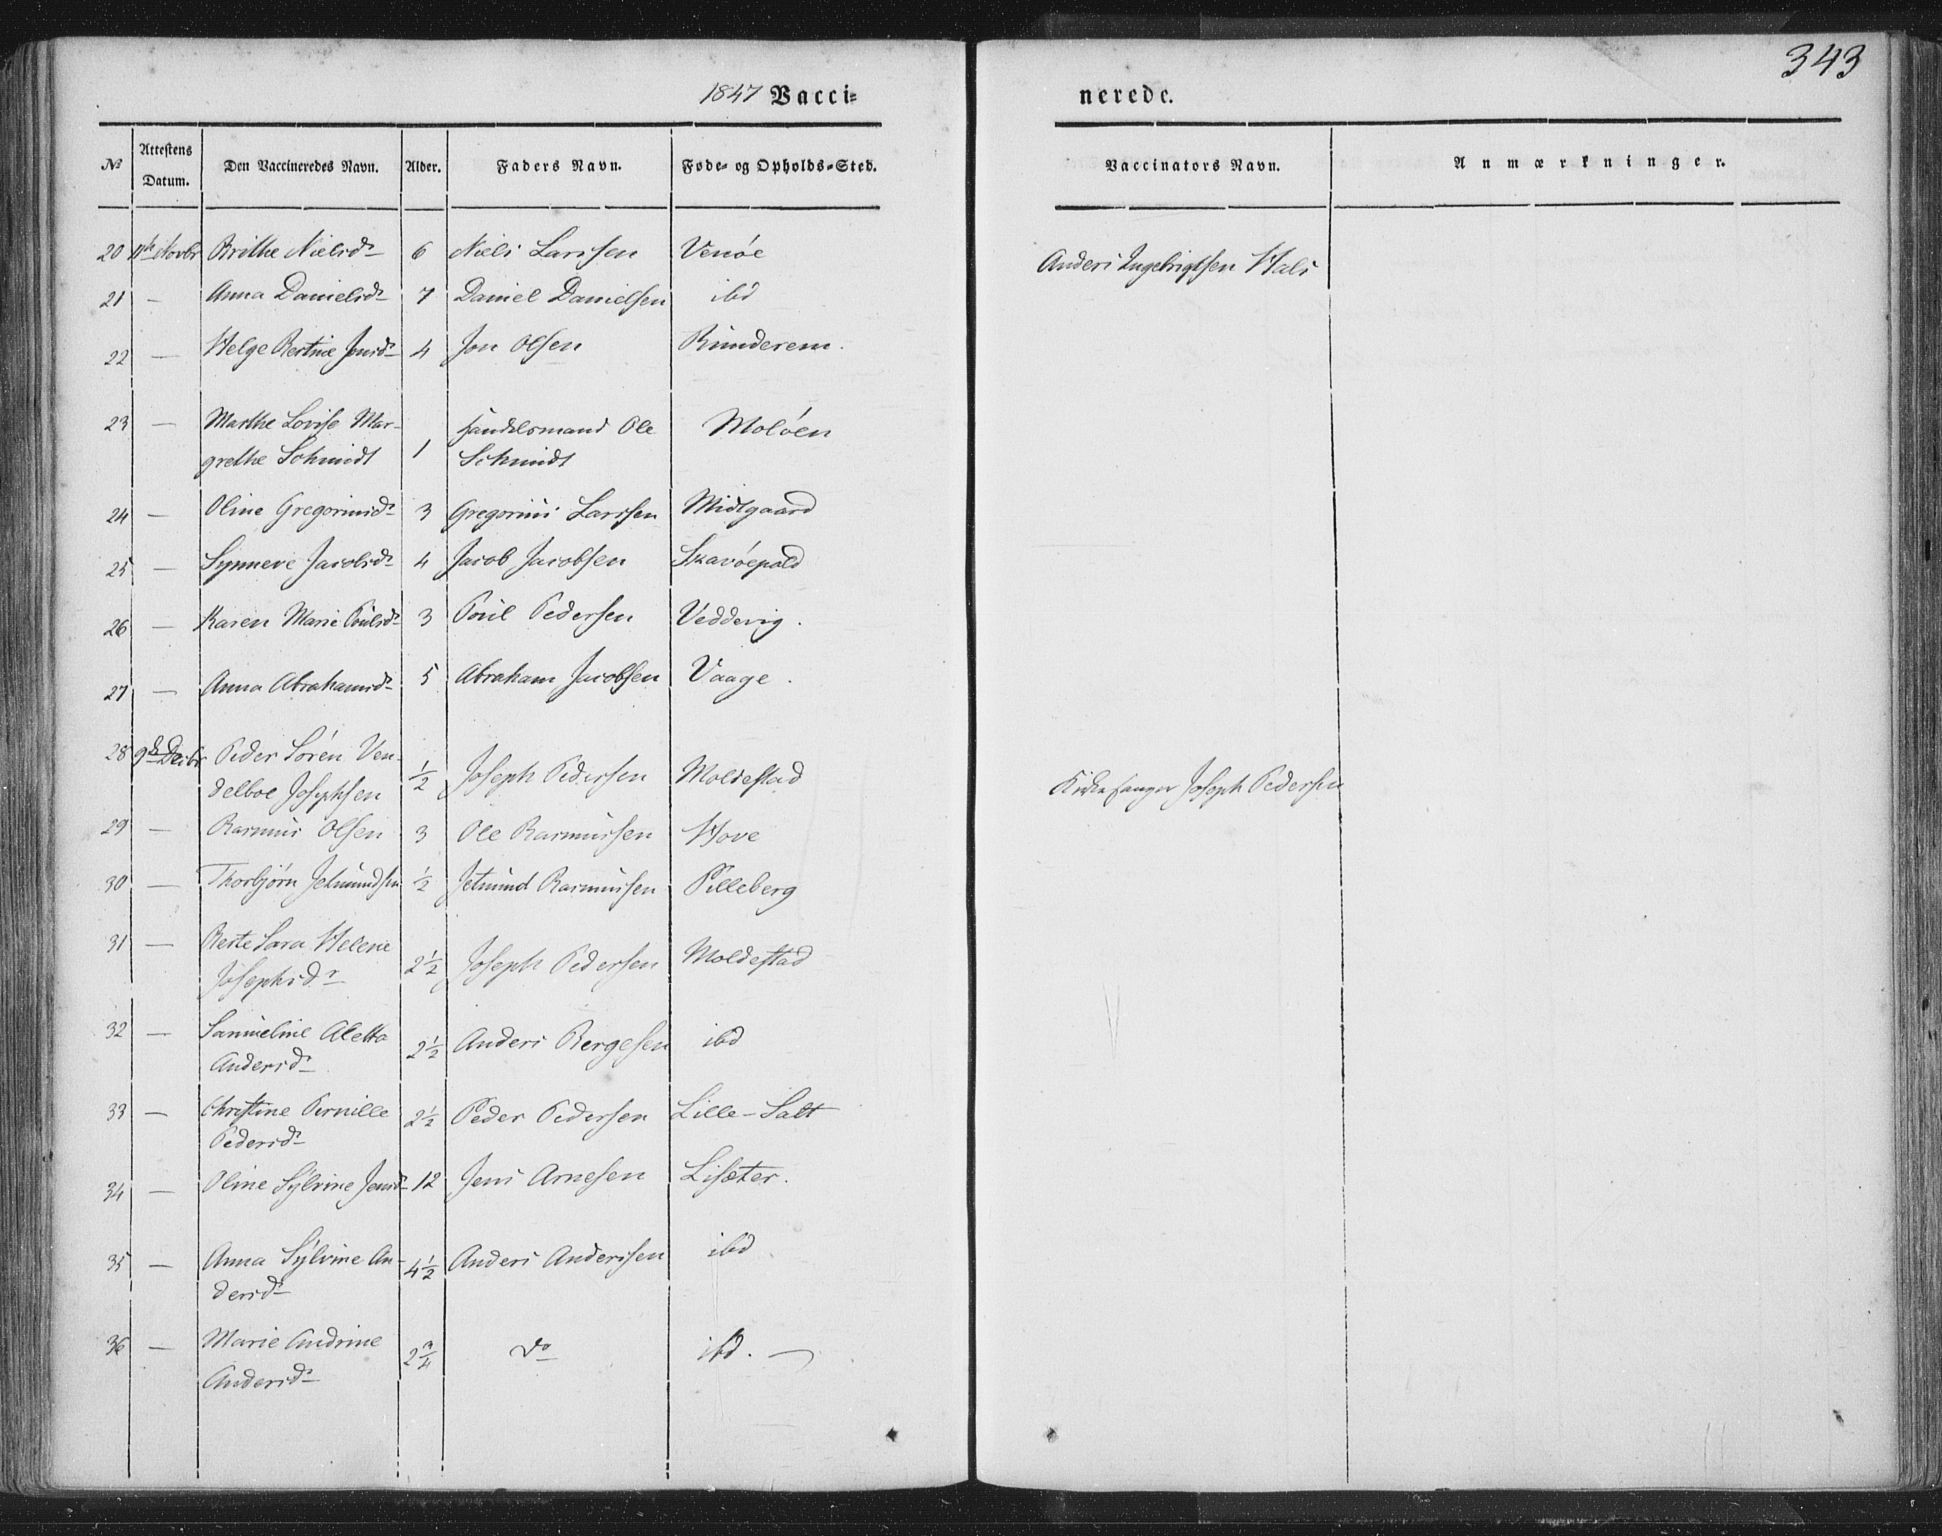 343
1847 Vacci-
nerede.
№ Attestens Datum. Den Vaccineredes Navn. Alder. Faders Navn. Føde- og Opholds-Sted. Vaccinators Navn. Anmærkninger.
20 11te Novbr Brithe Nielsdr 6 Niels Larssen Venøe Anders Ingebrigtsen Hals
21 — Anna Danielsdr 7 Daniel Danielsen ibd
22 — Helge Bertine Jonsdr 4 Jon Olsen Runderem.
23 — Marthe Lovise Mar- Handelsmand Ole Moløen
grethe Schmidt 1 Schmidt
24 — Oline Gregoriusdr 3 Gregorius Larssen Midtgaard
25 — Synneve Jacobsdr 4 Jacob Jacobsen Skavøepold
26 — Karen Marie Poulsdr 3 Poul Pedersen Veddevig.
27 — Anna Abrahamsdr 5 Abraham Jacobsen Vaage.
28 9de Decbr Peder Søren Ven-
delboe Josephsen ½ Joseph Pedersen Moldestad Kirkesanger Joseph Pedersen
29 — Rasmus Olsen 3 Ole Rasmussen Hove
30 — Thorbjørn Jetmundsen ½ Jetmund Rasmussen Pilleberg
31 — Berte Sara Helene
Josephsdr 2½ Joseph Pedersen Moldestad
32 — Samueline Aletta
Andersdr 2½ Anders Bergesen ibd
33 — Christine Pernille
Pedersdr 2½ Peder Pedersen Lille-Salt
34 — Oline Sylvine Jensdr 12 Jens Arnesen Lisæter.
35 — Anna Sylvine An-
dersdr 4½ Anders Anderssen ibd
36 — Marie Andrine
Andersdr 2¾ do ibd. —